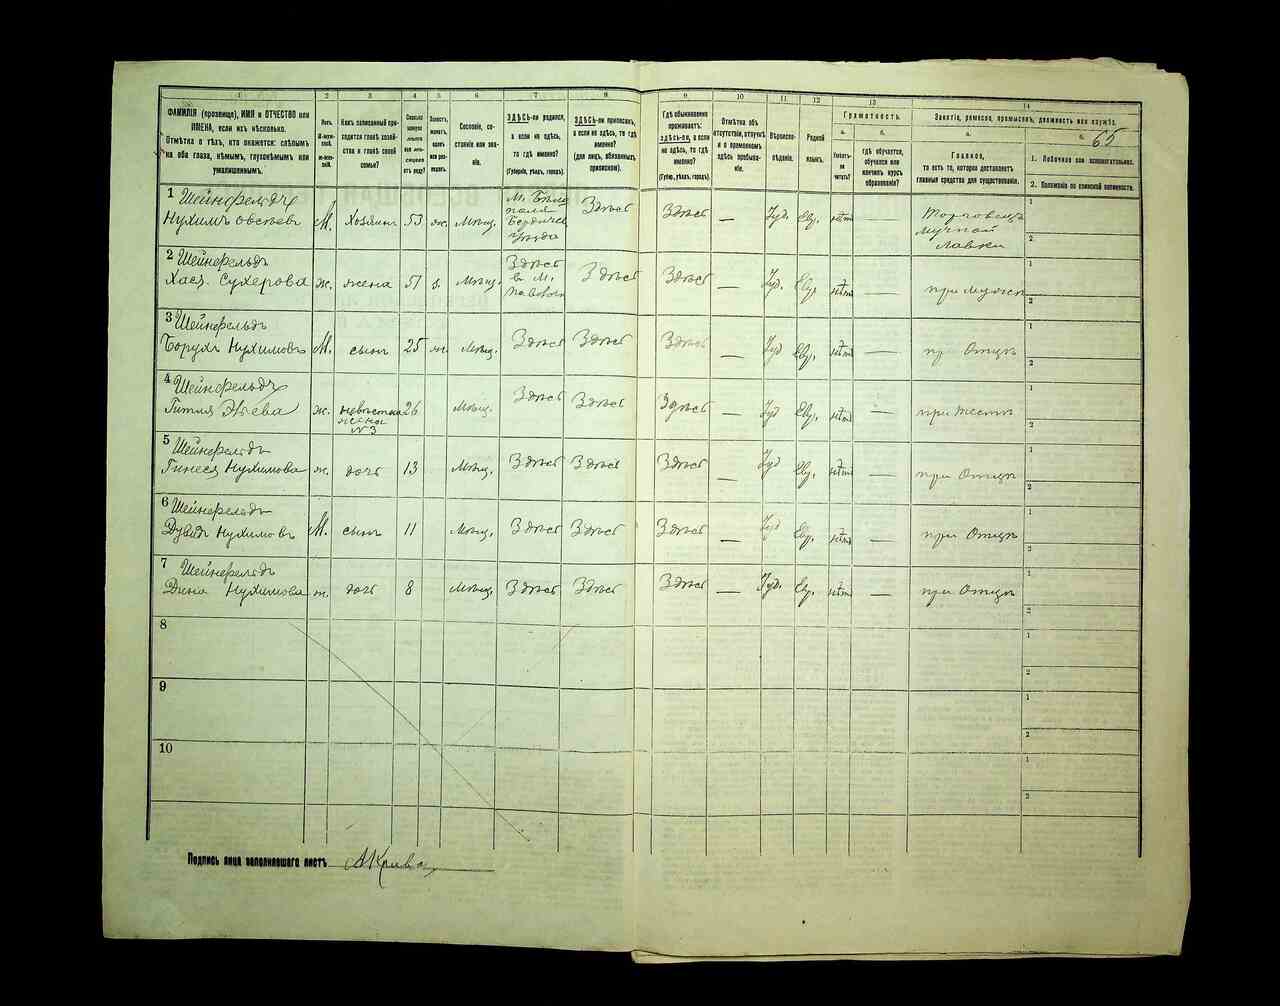 1 2 3 4 5 6 7 8 9 10 11 12 13 14
ФАМИЛІЯ (прозвище), ИМЯ и ОТЧЕСТВО или
ИМЕНА, если ихъ нѣсколько.
Отмѣтка о тѣхъ, кто окажется: слѣпымъ
на оба глаза, нѣмымъ, глухонѣмымъ или
умалишеннымъ.
Полъ.
М-мужской.
Ж-женскій.
Какъ записанный при-
ходится главѣ хозяй-
ства и главѣ своей
семьи?
Сословіе, со-
стояніе или зва-
ніе.
ЗДѢСЬ-ли родился,
а если не здѣсь,
то гдѣ именно?
(Губернія, уѣздъ, городъ).
ЗДѢСЬ-ли приписанъ,
а если не здѣсь, то гдѣ
именно?
(для лицъ, обязанныхъ
припискою).
Гдѣ обыкновенно
проживаетъ:
здѣсь-ли, а если
не здѣсь, то гдѣ
именно?
(Губер., уѣздъ, городъ).
Отмѣтка объ
отсутствіи, отлучкѣ
и о временномъ
здѣсь пребыва-
ніи.
Вѣроиспо-
вѣданіе.
Родной
языкъ.
Грамотность.
а. б.
Умѣетъ-
ли
читать?
гдѣ обучается,
обучался или
кончилъ курсъ
образованія?
Занятіе, ремесло, промыселъ, должность или служба.
а. б.
65
Главное,
то есть то, которое доставляетъ
главныя средства для существованія.
1. Побочное или вспомогательное.
2. Положеніе по воинской повинности.
1 Шейнфельдъ
Нухимъ М. Хозяинъ 53 ж. Мѣщ. Бердичев Уѣзда Здѣсь Здѣсь — Іуд. Евр. нѣтъ — Торговецъ
мучной
лавки
1
2
2 Шейнфельдъ
Хася Сухерова ж. жена 51 з. Мѣщ. Здѣсь в М. Здѣсь Здѣсь — Іуд. Евр. нѣтъ — при мужѣ
1
2
3 Шейнфельдъ
Борухъ Нухимовъ М. сынъ 25 ж. Мѣщ. Здѣсь Здѣсь Здѣсь — Іуд Евр. нѣтъ — при Отцѣ
1
2
4 Шейнфельдъ
Гитля ж. невѣстка 26 Мѣщ. Здѣсь Здѣсь Здѣсь — Іуд Евр. нѣтъ — при
жена
N3
1
2
5 Шейнфельдъ
Гинеся Нухимова ж. дочь 13 Мѣщ. Здѣсь Здѣсь Здѣсь — Іуд Евр. нѣтъ — при Отцѣ
1
2
6 Шейнфельдъ
Дувидъ Нухимовъ М. сынъ 11 Мѣщ. Здѣсь Здѣсь Здѣсь — Іуд Евр. нѣтъ — при Отцѣ
1
2
7 Шейнфельдъ
Дина Нухимова ж. дочь 8 Мѣщ. Здѣсь Здѣсь Здѣсь — Іуд. Евр. нѣтъ — при Отцѣ
1
2
8
1
2
9
1
2
10
1
2
Подпись лица заполнившаго листъ